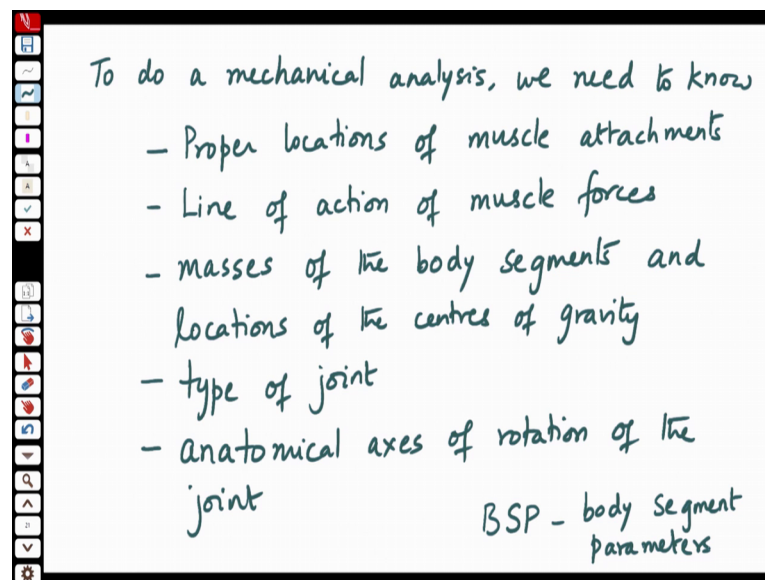 To do a mechanical analysis, we need to know
- Proper locations of muscle attachments
- Line of action of muscle forces
- masses of the body segments and
locations of the centres of gravity
- type of joint
- anatomical axes of rotation of the
joint
BSP - body segment
parameters